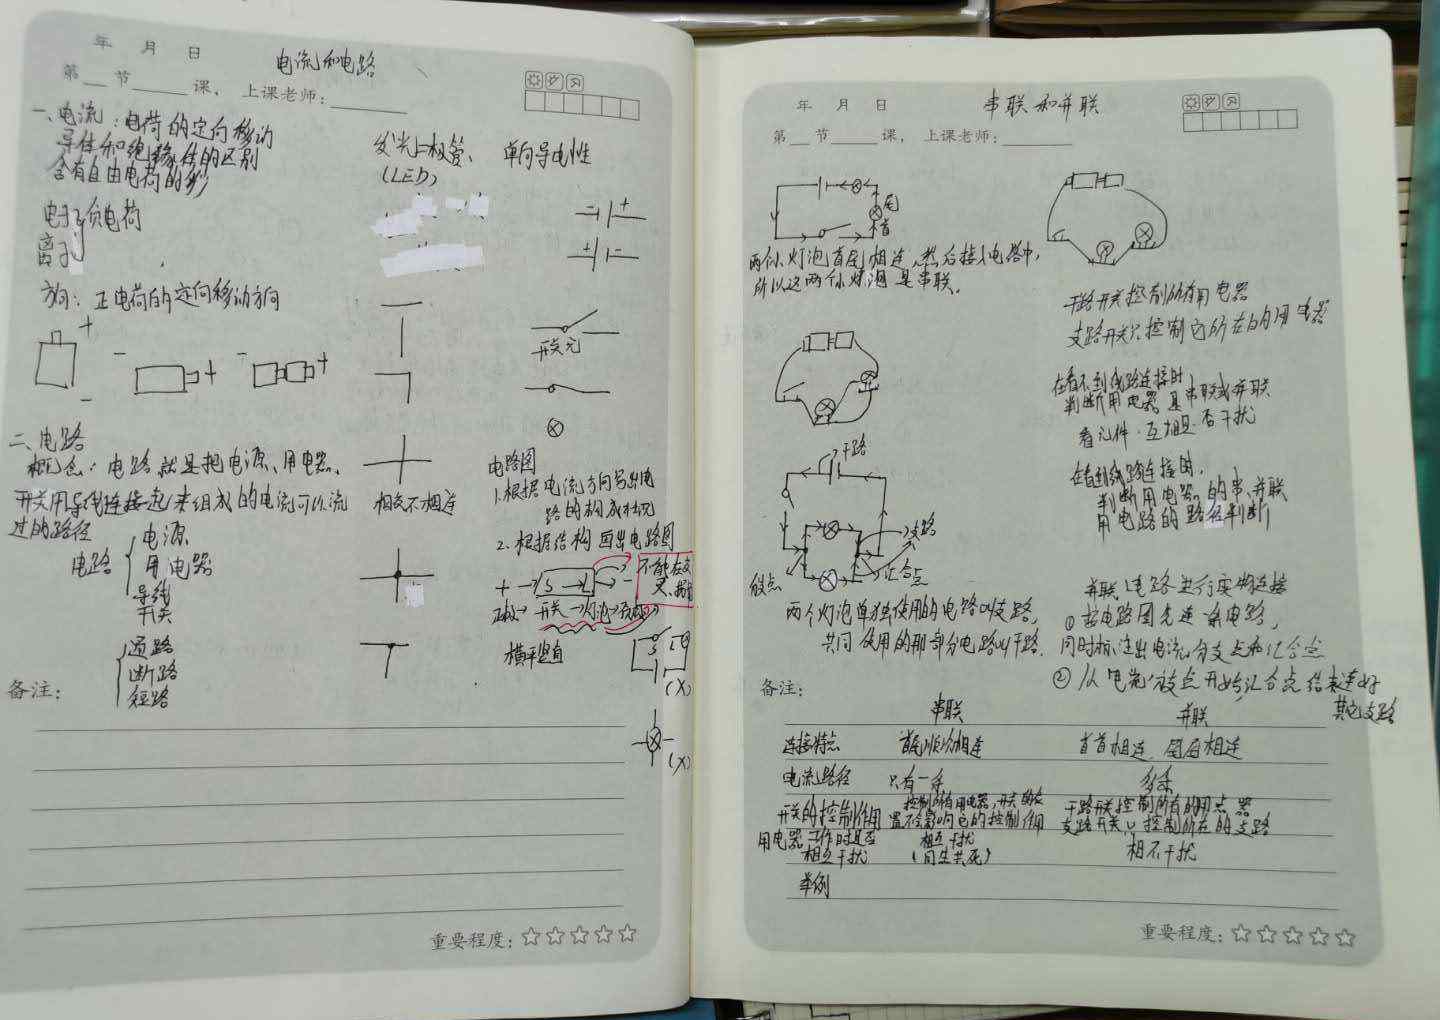 年 月 日
电流和电路
第 节 课， 上课老师：
一、电流：电荷的定向移动
导体和绝缘体的区别
含有自由电荷的多少
电子 负电荷
离子
方向：正电荷的定向移动方向
+
-
- +
- +
二、电路
概念：电路就是把电源、用电器、
开关用导线连接起来组成的电流可以流
过的路径
电路
电源
用电器
导线
开关
通路
断路
短路
备注：
发光二极管、 单向导电性
(LED)
- +
+ -
开关元
相交不相连
电路图
1.根据电流方向写出电
路的构成状况
2.根据结构画出电路图
+ → S → L → -
不能在交
正极→开关→灯泡→负极
横平竖直
(×)
(×)
重要程度：
年 月 日
串联和并联
第 节 课， 上课老师：
尾
首
两个灯泡首尾相连，然后接入电路中，
所以这两个灯泡是串联。
干路
支路
放点
汇合点
两个灯泡单独使用的电路叫支路，
共同使用的那部分电路叫干路.
干路开关控制所有用电器
支路开关只控制它所在的用电器
在看不到线路连接时
判断用电器是串联或并联
看元件互相是否干扰
在看到线路连接时，
判断用电器的串、并联
用电路的路径判断
并联电路进行实物连接
①按电路图先连一条电路，
同时标注出电流分支点和汇合点
②从电流放点开始，汇合点结束连好
其它支路
备注：
串联 并联
连接特点 首尾顺次相连 首首相连、尾尾相连
电流路径 只有一条 多条
开关的控制作用 控制所有用电器，开关的位置不会影响它的控制作用 干路开关控制所有的用点器
支路开关只控制所在的支路
用电器工作时是否相互干扰 相互干扰 相不干扰
(同生共死)
举例
重要程度：